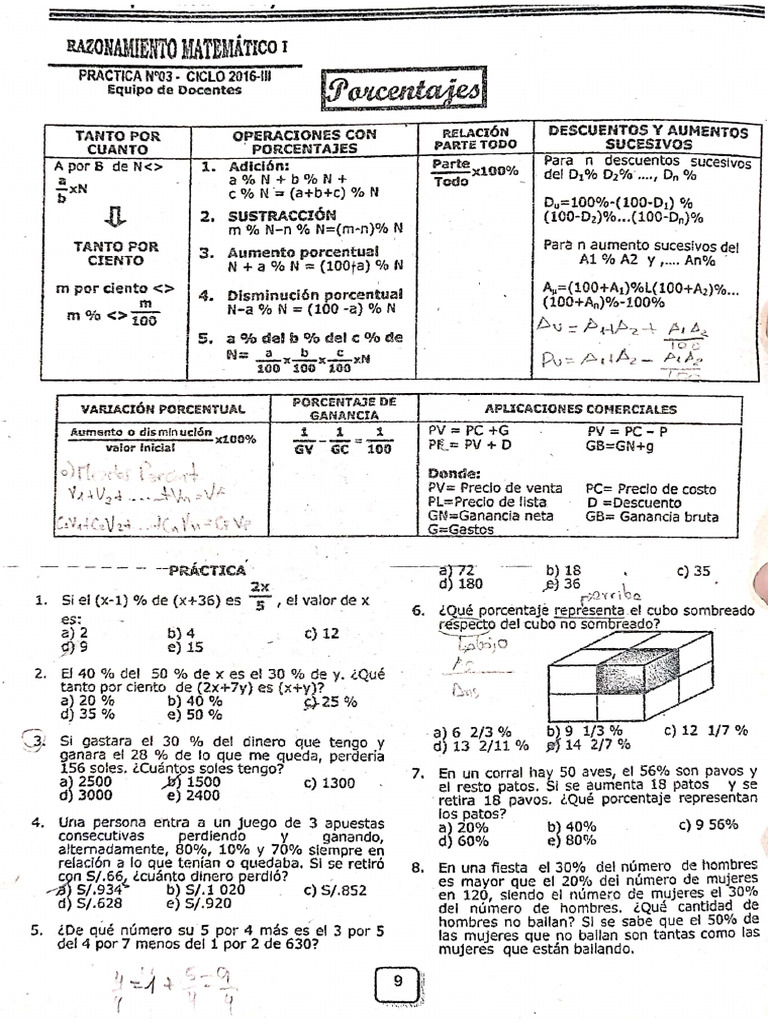 RAZONAMIENTO MATEMÁTICO I
PRACTICA Nº03 - CICLO 2016-III
Equipo de Docentes
Porcentajes
TANTO POR CUANTO
A por B de N<>
a/b xN
TANTO POR CIENTO
m por ciento <>
m % <> m/100
OPERACIONES CON PORCENTAJES
1. Adición:
a % N + b % N +
c % N = (a+b+c) % N
2. SUSTRACCIÓN
m % N–n % N=(m-n)% N
3. Aumento porcentual
N + a % N = (100+a) % N
4. Disminución porcentual
N-a % N = (100 -a) % N
5. a % del b % del c % de
N= a/100 x b/100 x c/100 xN
RELACIÓN PARTE TODO
Parte/Todo x100%
DESCUENTOS Y AUMENTOS SUCESIVOS
Para n descuentos sucesivos
del D₁% D₂% ...., Dn %
Du=100%-(100-D₁) %
(100-D₂)%...(100-Dn)%
Para n aumento sucesivos del
A1 % A2 y ,.... An%
Au=(100+A₁)%L(100+A₂)%...
(100+An)%-100%
Au = A1+A2 + A1A2/100
Du = A1+A2 – A1A2/100
VARIACIÓN PORCENTUAL
Aumento o disminución/valor inicial x100%
V1+V2+ ....+Vn=VF
PORCENTAJE DE GANANCIA
1/GV – 1/GC = 1/100
APLICACIONES COMERCIALES
PV = PC +G PV = PC – P
PL = PV + D GB=GN+g
Donde:
PV= Precio de venta PC= Precio de costo
PL=Precio de lista D =Descuento
GN=Ganancia neta GB= Ganancia bruta
G=Gastos
PRÁCTICA
1. Si el (x-1) % de (x+36) es 2x/5 , el valor de x
es:
a) 2 b) 4 c) 12
d) 9 e) 15
2. El 40 % del 50 % de x es el 30 % de y. ¿Qué
tanto por ciento de (2x+7y) es (x+y)?
a) 20 % b) 40 % c) 25 %
d) 35 % e) 50 %
3. Si gastara el 30 % del dinero que tengo y
ganara el 28 % de lo que me queda, perdería
156 soles. ¿Cuántos soles tengo?
a) 2500 b) 1500 c) 1300
d) 3000 e) 2400
4. Una persona entra a un juego de 3 apuestas
consecutivas perdiendo y ganando,
alternadamente, 80%, 10% y 70% siempre en
relación a lo que tenían o quedaba. Si se retiró
con S/.66, ¿cuánto dinero perdió?
a) S/.934 b) S/.1 020 c) S/.852
d) S/.628 e) S/.920
5. ¿De qué número su 5 por 4 más es el 3 por 5
del 4 por 7 menos del 1 por 2 de 630?
4/4 = 1 + 5/4 = 9/4
a) 72 b) 18 c) 35
d) 180 e) 36
parriba
6. ¿Qué porcentaje representa el cubo sombreado
respecto del cubo no sombreado?
a) 6 2/3 % b) 9 1/3 % c) 12 1/7 %
d) 13 2/11 % e) 14 2/7 %
7. En un corral hay 50 aves, el 56% son pavos y
el resto patos. Si se aumenta 18 patos y se
retira 18 pavos. ¿Qué porcentaje representan
los patos?
a) 20% b) 40% c) 9 56%
d) 60% e) 80%
8. En una fiesta el 30% del número de hombres
es mayor que el 20% del número de mujeres
en 120, siendo el número de mujeres el 30%
del número de hombres. ¿Qué cantidad de
hombres no bailan? Si se sabe que el 50% de
las mujeres que no bailan son tantas como las
mujeres que están bailando.
9